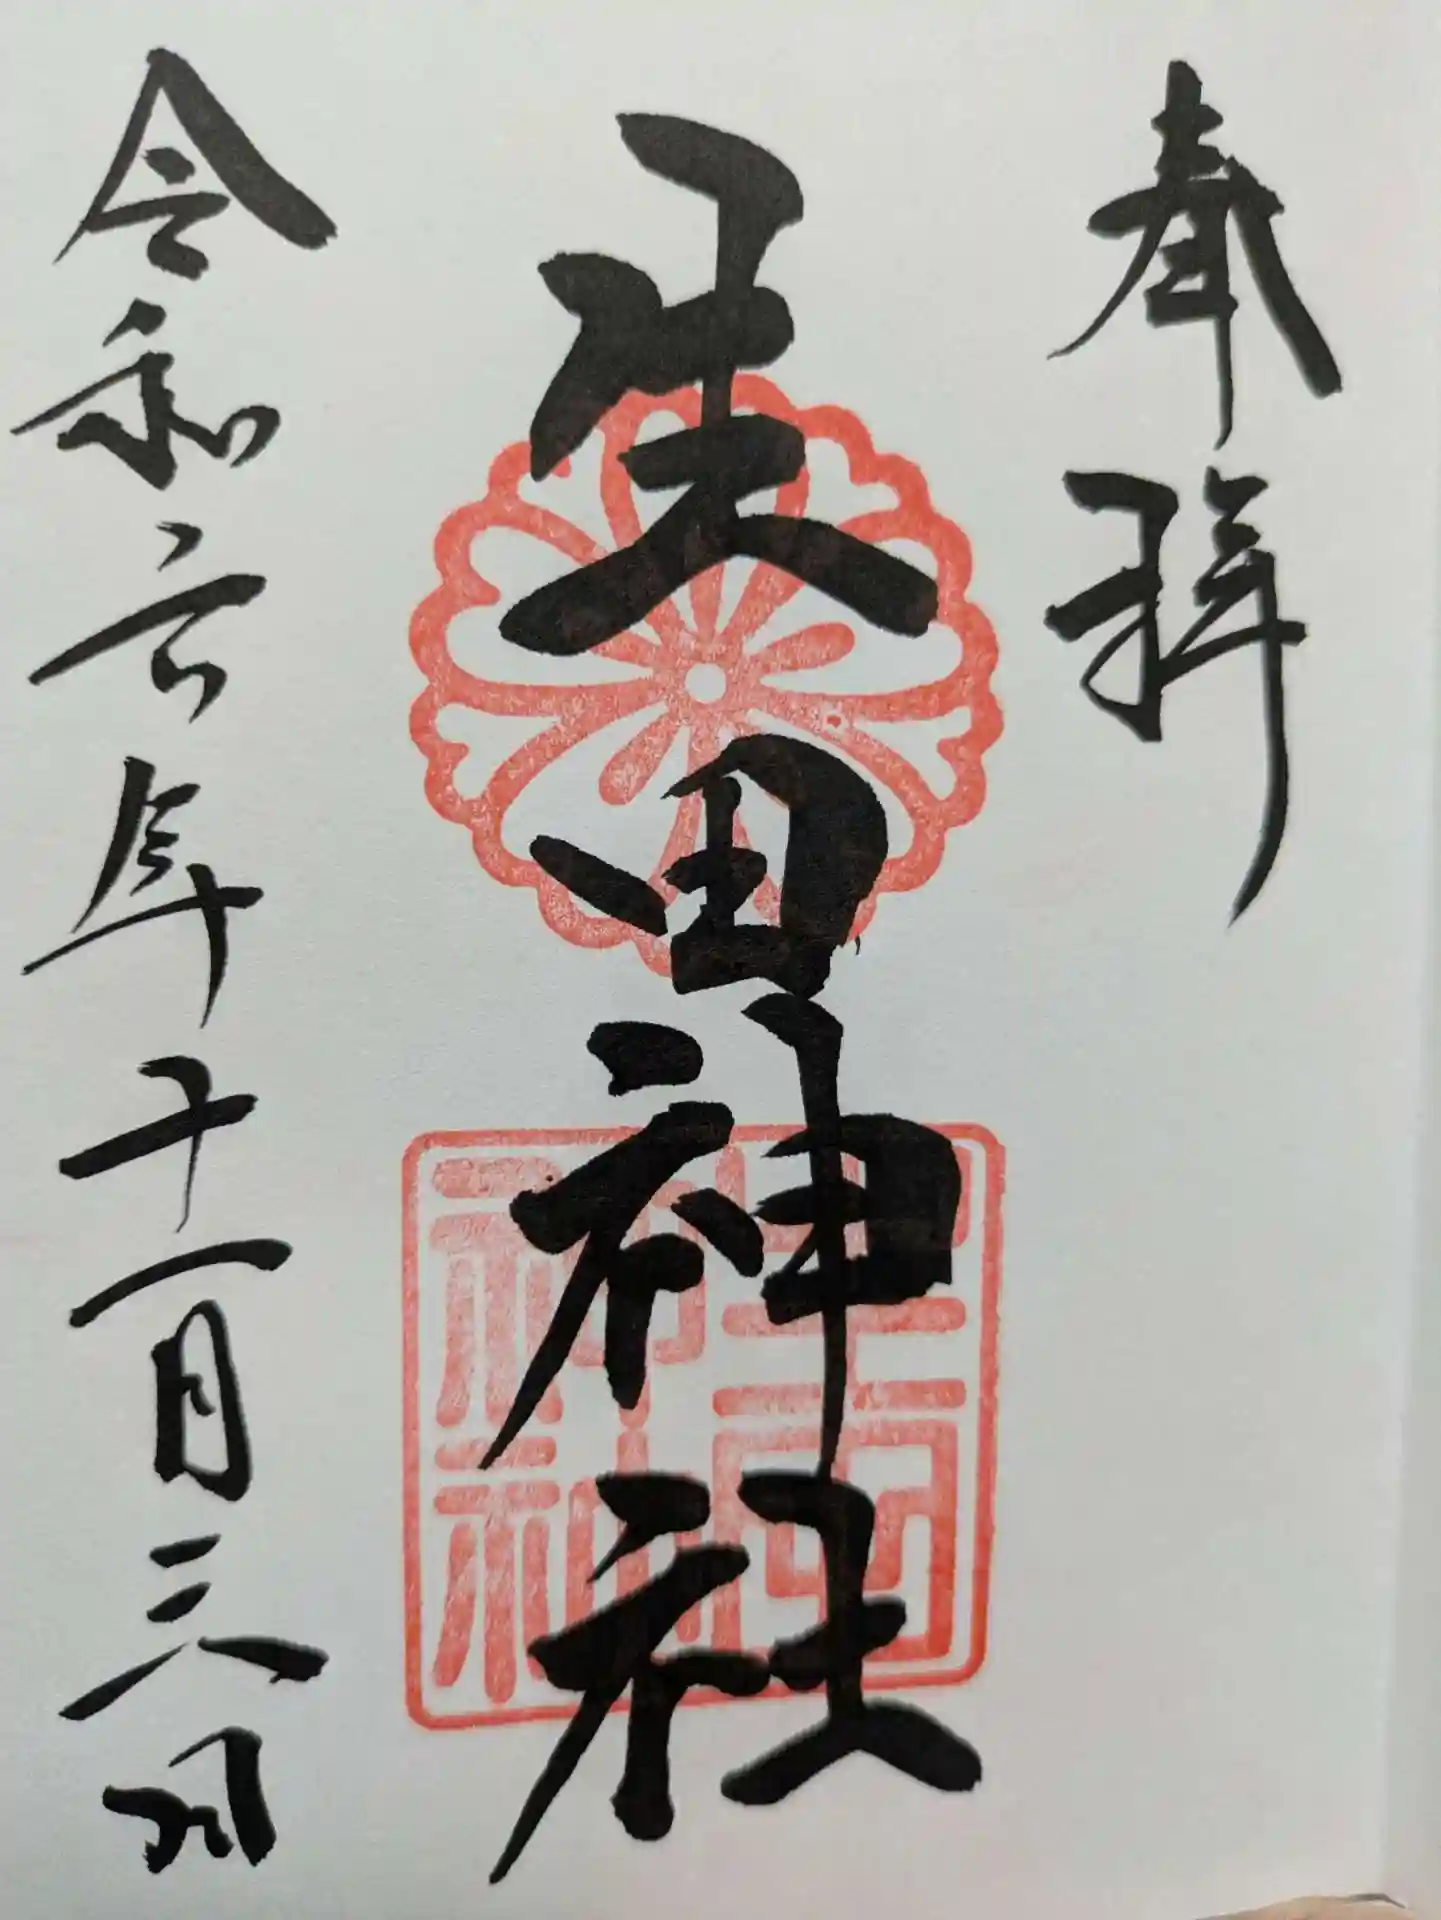 奉拝
生田神社
生田
神社
令和六年十一月二八日